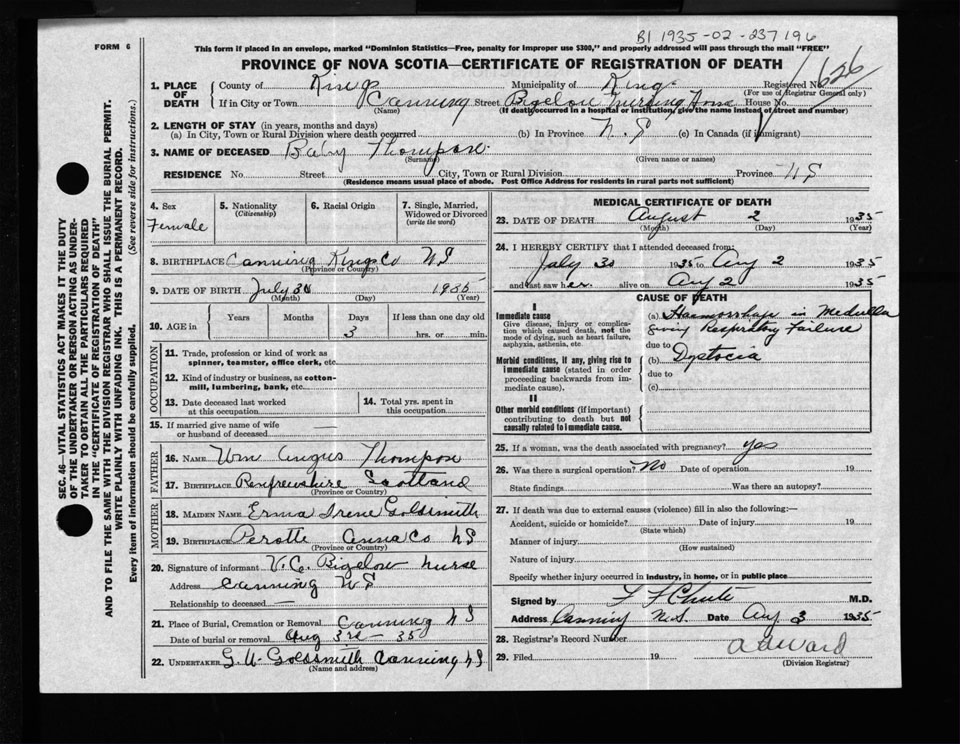 B1 1935-02-237196
FORM 6
This form if placed in an envelope, marked "Dominion Statistics—Free, penalty for improper use $300," and properly addressed will pass through the mail "FREE"
PROVINCE OF NOVA SCOTIA—CERTIFICATE OF REGISTRATION OF DEATH
1. PLACE OF DEATH County of Kings Municipality of Kings Registered No. 626
(For use of Registrar General only)
If in City or Town Canning Street Bigelow Nursing Home House No.
(Name) (If death occurred in a hospital or institution, give the name instead of street and number)
2. LENGTH OF STAY (in years, months and days)
(a) In City, Town or Rural Division where death occurred (b) In Province N.S (c) In Canada (if immigrant)
3. NAME OF DECEASED Baby Thompson
(Surname) (Given name or names)
RESIDENCE No. Street City, Town or Rural Division Province NS
(Residence means usual place of abode. Post Office Address for residents in rural parts not sufficient)
4. Sex Female
5. Nationality (Citizenship)
6. Racial Origin
7. Single, Married, Widowed or Divorced (write the word)
8. BIRTHPLACE Canning Kings Co NS
(Province or Country)
9. DATE OF BIRTH July 30 1935
(Month) (Day) (Year)
10. AGE in Years Months Days 3 If less than one day old hrs. or min.
OCCUPATION
11. Trade, profession or kind of work as spinner, teamster, office clerk, etc.
12. Kind of industry or business, as cotton-mill, lumbering, bank, etc.
13. Date deceased last worked at this occupation
14. Total yrs. spent in this occupation
15. If married give name of wife or husband of deceased
FATHER
16. NAME Wm Angus Thompson
17. BIRTHPLACE Renfrewshire Scotland
(Province or Country)
MOTHER
18. MAIDEN NAME Erma Irene Goldsmith
19. BIRTHPLACE Perotte Anna Co NS
(Province or Country)
20. Signature of informant V.C. Bigelow Nurse
Address Canning NS
Relationship to deceased —
21. Place of Burial, Cremation or Removal Canning NS
Date of burial or removal Aug 3rd — 35
22. UNDERTAKER G.W. Goldsmith Canning NS
(Name and address)
MEDICAL CERTIFICATE OF DEATH
23. DATE OF DEATH August 2 1935
(Month) (Day) (Year)
24. I HEREBY CERTIFY that I attended deceased from:
July 30 1935 to Aug 2 1935
and last saw her alive on Aug 2 1935
CAUSE OF DEATH
I
Immediate cause
Give disease, injury or complication which caused death, not the mode of dying, such as heart failure, asphyxia, asthenia, etc.
(a) Haemorrhage in Medulla
giving Respiratory Failure
due to
Morbid conditions, if any, giving rise to immediate cause (stated in order proceeding backwards from immediate cause).
(b) Dystocia
due to
(c)
II
Other morbid conditions (if important) contributing to death but not causally related to immediate cause.
25. If a woman, was the death associated with pregnancy? Yes
26. Was there a surgical operation? No Date of operation 19
State findings Was there an autopsy?
27. If death was due to external causes (violence) fill in also the following:—
Accident, suicide or homicide? Date of injury 19
(State which)
Manner of injury
(How sustained)
Nature of injury
Specify whether injury occurred in industry, in home, or in public place
Signed by F F Chute M.D.
Address Canning N.S. Date Aug 3 1935
28. Registrar's Record Number
29. Filed 19
(Division Registrar)
SEC. 46—VITAL STATISTICS ACT MAKES IT THE DUTY
OF THE UNDERTAKER OR PERSON ACTING AS UNDER-
TAKER TO OBTAIN ALL THE PARTICULARS REQUIRED
IN THE "CERTIFICATE OF REGISTRATION OF DEATH"
AND TO FILE THE SAME WITH THE DIVISION REGISTRAR WHO SHALL ISSUE THE BURIAL PERMIT.
WRITE PLAINLY WITH UNFADING INK. THIS IS A PERMANENT RECORD.
Every item of information should be carefully supplied. (See reverse side for instructions.)